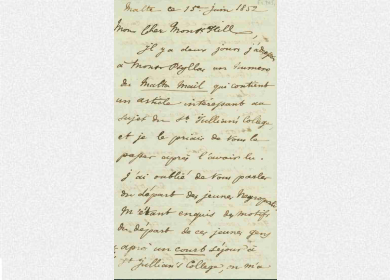 Malte ce 15 Juin 1852
Mon Cher Monsr Hill
Il y a deux jours j'adressai
à Monsr un numero
du Malta Mail qui contient
un article intéressant au
sujet du St Jullian's College
et je le priais de vous le
passer après l'avoir lu.
j'ai oublié de vous parler
du départ des jeunes
M'étant enquis des motifs
du départ de ces jeunes gens
après un court séjour à
St Jullian's College, on m'a